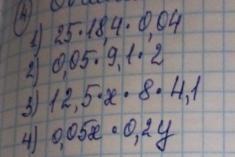 4)
1) 25·18,4·0,04
2) 0,05·9,1·2
3) 12,5·x·8·4,1
4) 0,05x·0,2y